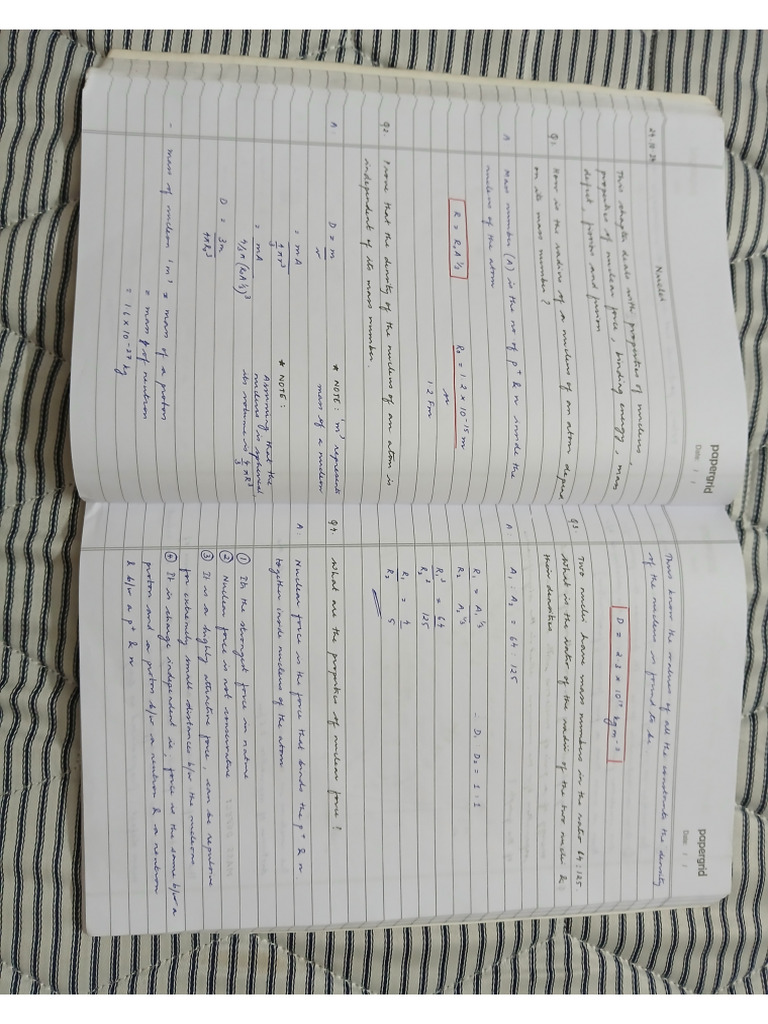 papergrid
Date: / /
24.10.24
Nuclei
This chapter deals with properties of nucleus,
properties of nuclear force, binding energy, mass
defect, fission and fusion
Q1. How is the radius of a nucleus of an atom depend
on its mass number?
A Mass number (A) is the no of p+ & n inside the
nucleus of the atom
R = R₀A^1/3
R₀ = 1.2 × 10^-15 m
or
1.2 Fm
Q2. Prove that the density of the nucleus of an atom is
independent of its mass number.
A D = m/v
* NOTE: 'm' represents
mass of a nucleon
= mA / 4/3 πr³
* NOTE:
Assuming that the
nucleus is spherical,
its volume is 4/3 πR³
= mA / 4/3 π (R₀A^1/3)³
D = 3m / 4πR₀³
- mass of nucleon 'm' ≈ mass of a proton
≈ mass of neutron
= 1.6 × 10^-27 kg
papergrid
Date: / /
Thus know the values of all the constants the density
of the nucleus is found to be
D = 2.3 × 10^17 kg m^-3
Q3 Two nuclei have mass numbers in the ratio 64:125.
What is the ratio of the radii of the two nuclei &
their densities
A: A₁ : A₂ = 64 : 125
R₁ / R₂ = A₁^1/3 / A₂^1/3
∴ D₁ : D₂ = 1 : 1
R₁³ / R₂³ = 64 / 125
R₁ / R₂ = 4 / 5
Q4 What are the properties of nuclear force?
A: Nuclear force is the force that binds the p+ & n
together inside nucleus of the atom
① Its the strongest force in nature
② Nuclear force is not conservative
③ It is a highly attractive force, can be repulsive
for extremely small distances b/w the nucleons
④ It is charge independent ie, force is the same b/w a
proton and a proton b/w a neutron & a neutron
& b/w a p+ & n